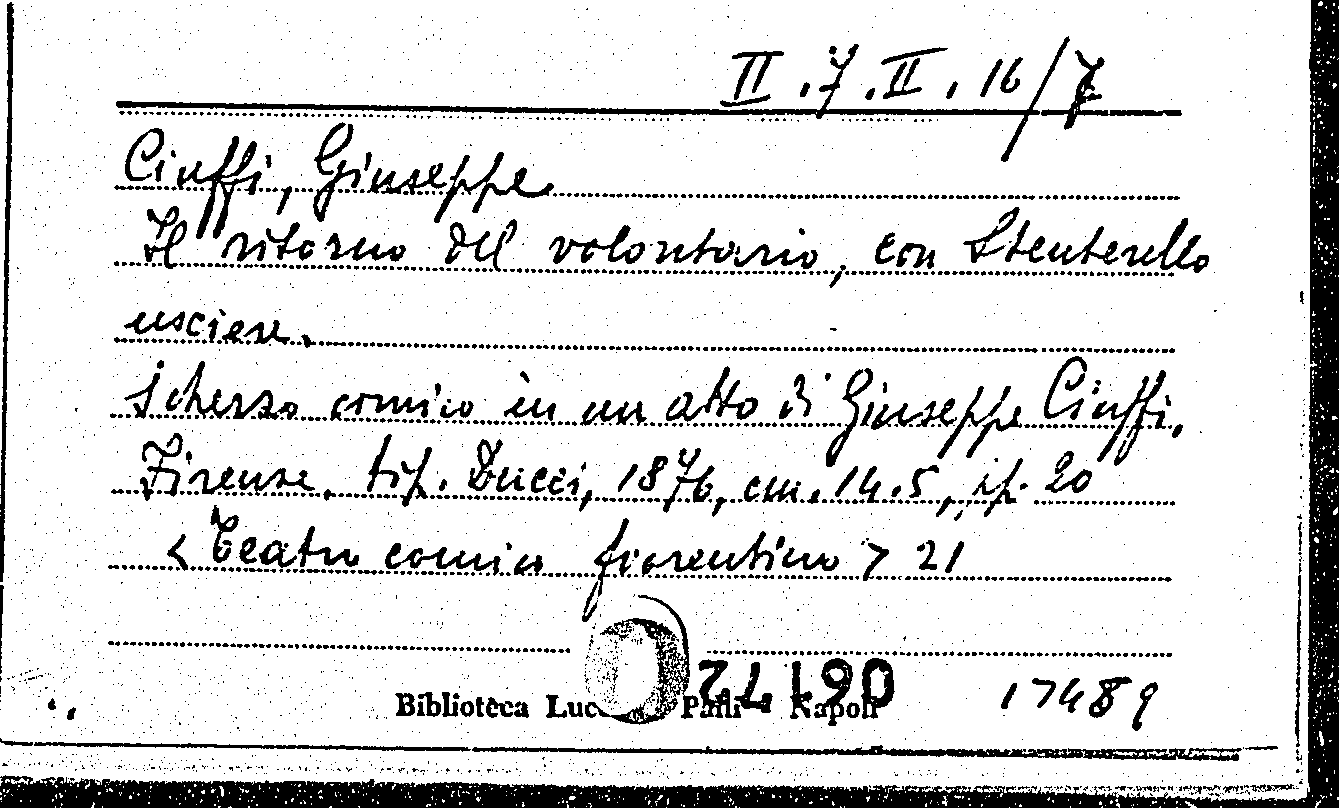 II.7.II.16/7
Ciuffi, Giuseppe
Il ritorno del volontario, con Stenterello
usciere.
Scherzo comico in un atto di Giuseppe Ciuffi.
Firenze. tip. Ducci, 1876, cm. 14.5, p. 20
< Teatro comico fiorentino > 21
Biblioteca Palli - Napoli
17489